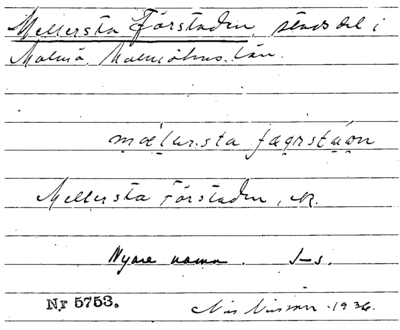 Mellersta Förstaden, stadsdel i
Malmö, Malmöhus län.
Mellersta Förstaden, N.
Nyare namn. J-s.
Nr 5753. Nils Nilsson 1936.